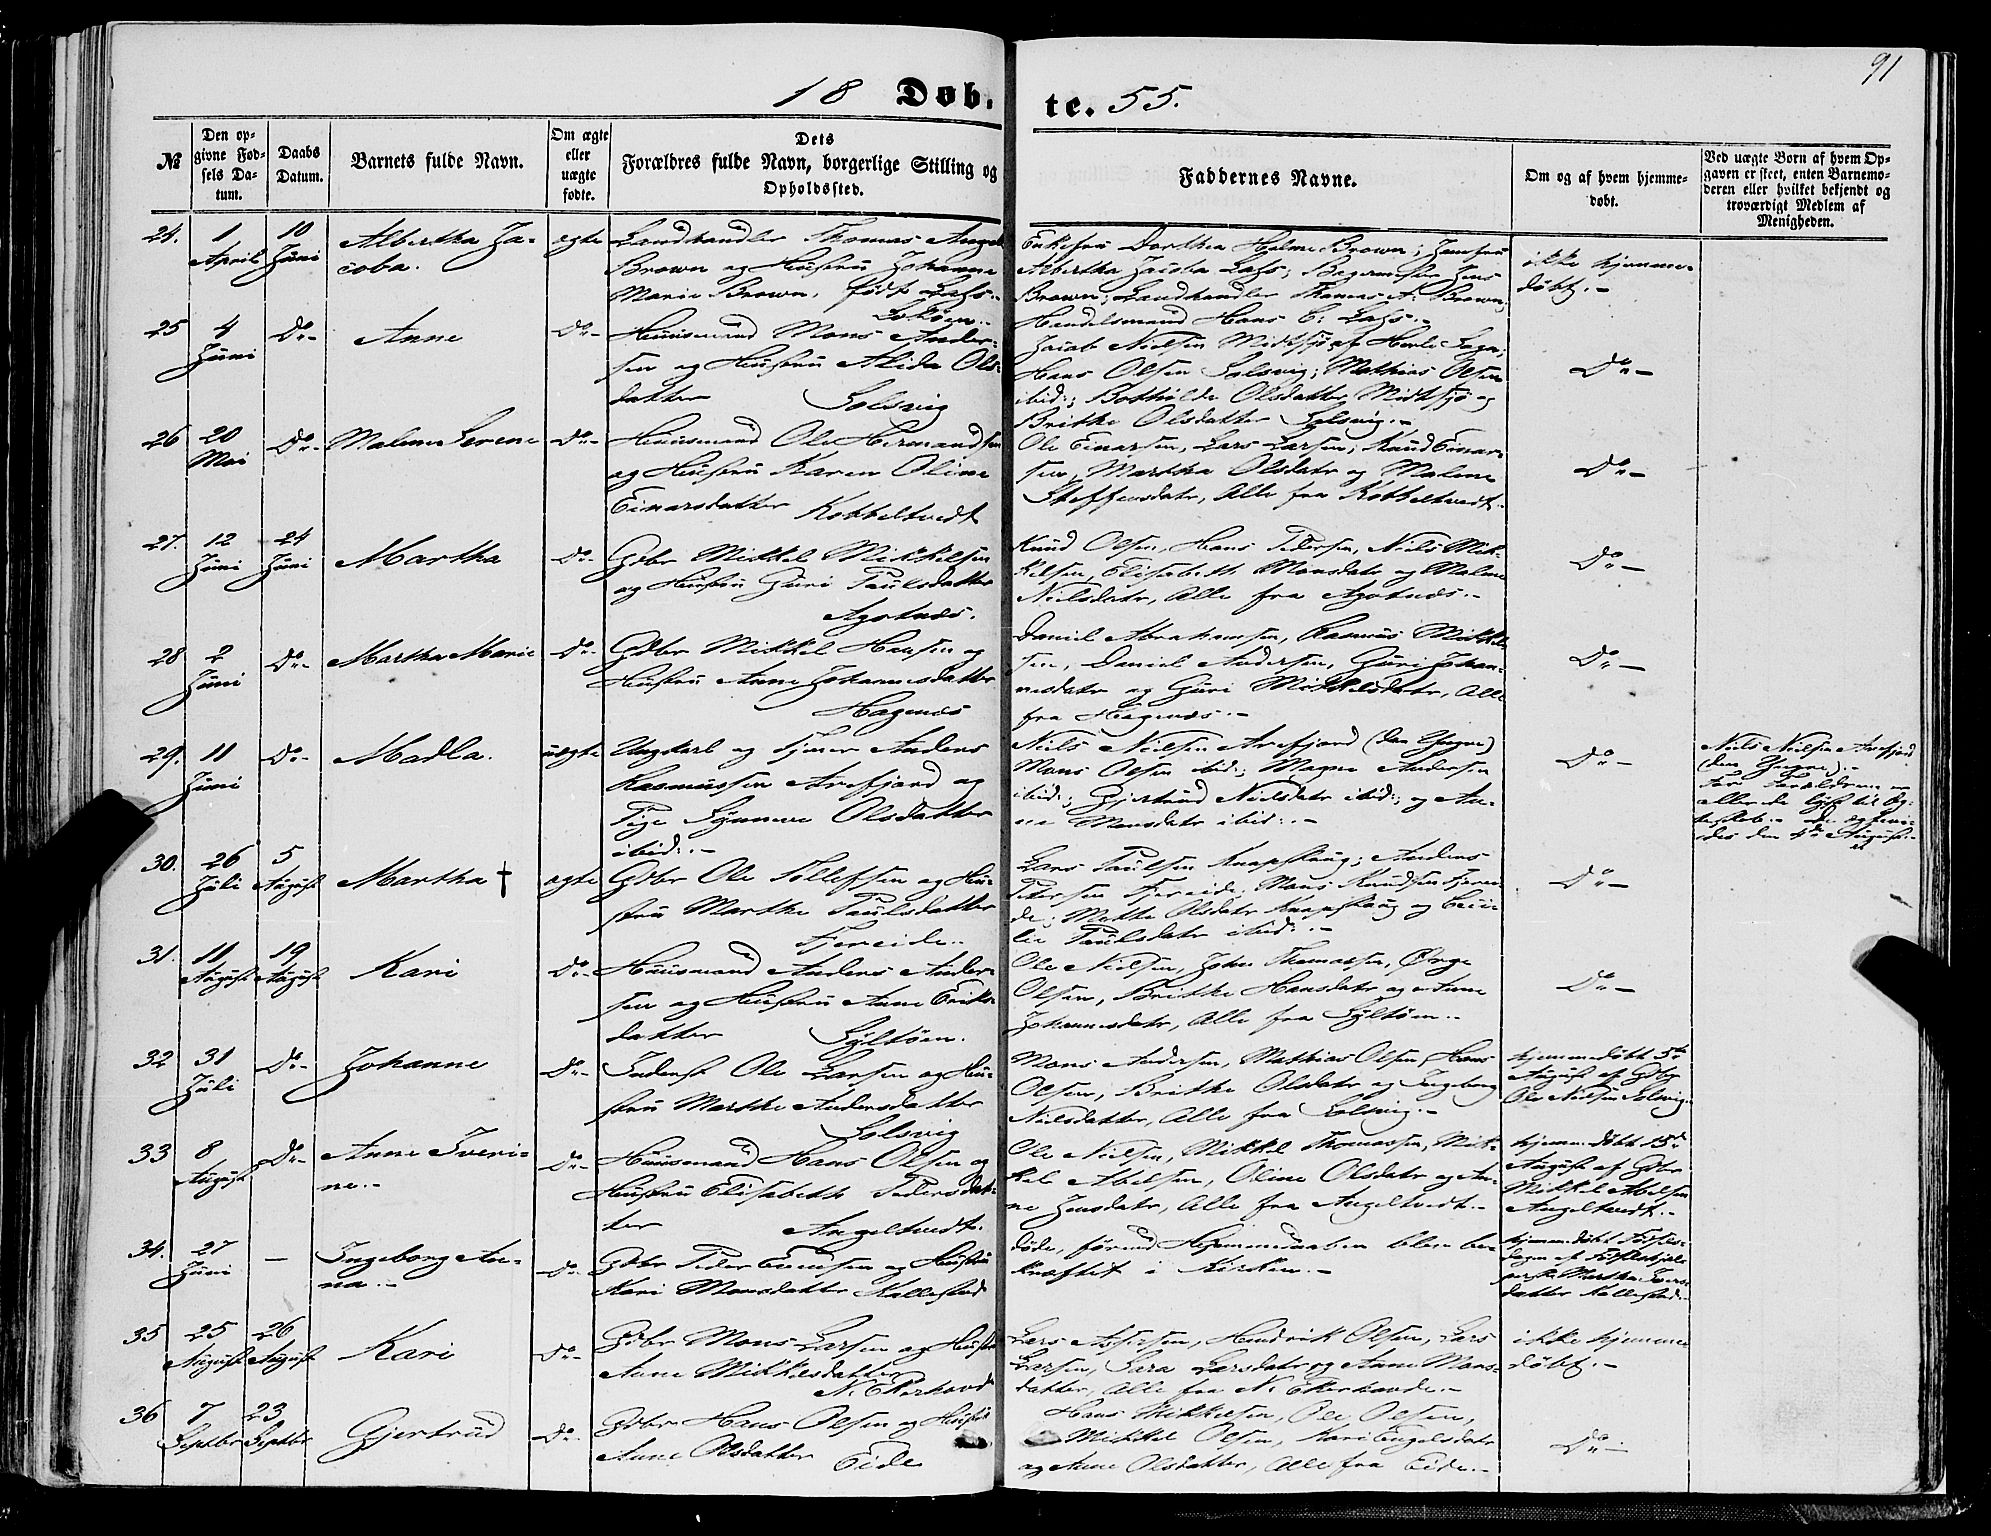 91
18 Døb- te. 55.
№
Den op-
givne Fød-
sels Da-
tum.
Daabs
Datum.
Barnets fulde Navn.
Om ægte
eller
uægte
fødte.
Dets
Forældres fulde Navn, borgerlige Stilling og
Opholdssted.
Faddernes Navne.
Om og af hvem hjemme-
døbt.
Ved uægte Børn af hvem Op-
gaven er skeet, enten Barnemo-
deren eller hvilket bekjendt og
troværdigt Medlem af
Menigheden.
24. 1 April 10 Juni Albertha Ja-
coba.
ægte
Landhandler Thomas Angel
Brown og Hustru Johanne
Marie Brown, født
Enkefru Dorthea Holme Brown; Jomfru
Albertha Jacoba Bagermester Jens
Brown; Landhandler Thomas A. Brown,
Handelsmand Hans C.
ikke hjemme-
døbt.-
25 4 Juni Do- Anne Do-
Huusmand Mons Ander-
sen og Hustru Alida Ols-
datter Solsvig
Jacob Nielsen Midtsjø af Herlø Sogn,
Hans Olsen Solsvig; Mathias Olsen
ibid:; Bothilde Olsdatter Midtsjø og
Brithe Olsdatter Solsvig.-
Do-
26 20 Mai Do- Malene Serene Do-
Huusmand Ole Hermandsen
og Hustru Karen Oline
Einarsdatter Kobbeltvedt
Ole Einarsen, Lars Larsen, Knud Einar-
sen, Martha Olsdatr og Malene
Steffensdatr, Alle fra Kobbeltvedt.
Do-
27. 12 Juni 24 Juni Martha Do-
Gdbr Mikkel Mikkelsen
og Hustru Guri Paulsdatter
Agotnæs.
Knud Olsen, Hans Pedersen, Niels Mik-
kelsen, Elisabeth Monsdatr og Malene
Nielsdatr, Alle fra Agotnæs.-
Do-
28 2 Juni Do- Martha Marie Do-
Gdbr Mikkel Hansen og
Hustru Anne Johannesdatter
Hagenæs
Daniel Abrahamsen, Rasmus Mikkel-
sen, Daniel Andersen, Guri Johan-
nesdatr og Guri Mikkelsdatr, Alle
fra Hagenæs.-
Do-
29. 11 Juni Do- Madla. uægte
Ungkarl og Tjener Anders
Rasmussen Arefjord og
Pige Synneve Olsdatter
ibid:.-
Niels Nielsen Arefjord (den Yngre)
Mons Olsen ibid:; Magne Andersen
ibid:; Gjertrud Nielsdatr ibid:; og An-
ne Monsdatr ibid:.-
Do-
Niels Nielsen Arefjord
(den Yngre).-
For Forældrene er
allerede lyst til Æg-
teskab.- De
den 4de August.-
30. 26 Juli 5 August Martha † ægte
Gdbr Ole Tollefsen og Hu-
stru Marthe Paulsdatter
Fjereide.
Lars Paulsen Knapskaug; Anders
Petersen Fjereide; Mons Knudsen Fjerei-
de; Mette Olsdatr Knapskaug og Ceci-
lie Paulsdatr ibid:.-
Do-
31. 11 August 19 August Kari Do-
Huusmand Anders Ander-
sen og Hustru Anne Eriks-
datter Syltøen.
Ole Nielsen, John Thomassen,
Olsen, Brithe Hansdatr og Anne
Johannesdatr, Alle fra Syltøen.-
Do-
32 31 Juli Do- Johanne Do-
Inderst Ole Larsen og Hu-
stru Marthe Andersdatter
Solsvig
Mons Andersen, Mathias Olsen, Hans
Olsen, Brithe Olsdatr og Ingeborg
Nielsdatter, Alle fra Solsvig.-
hjemmedøbt 5te
August af Gdbr
Ole Nielsen Solsvig.
33 8 August Do- Anne Iveri-
ne.-
Do-
Huusmand Hans Olsen og
Hustru Elisabeth Pedersdat-
ter Angeltvedt.
Ole Nielsen, Mikkel Thomassen, Mik-
kel Abelsen, Oline Olsdatr og An-
ne Jensdatr, Alle fra Angeltvedt.-
hjemmedøbt 15de
August af Gdbr
Mikkel Abelsen
Angeltvedt.-
34. 27 Juni - Ingeborg An-
na.-
Do-
Gdbr Peder Evensen og Hustru
Kari Monsdatter Kallestad
døde, førend Hjemmedaaben blev be-
kræftet i Kirken.-
hjemmedøbt Fødsels-
dagen af Fødselshjel-
perske Martha Ivers-
datter Kallestad.-
35 25 August 26 August Kari Do-
Gdbr Mons Larsen og Hustru
Anne Mikkelsdatter
N. Ekerhovd
Lars Hendrik Olsen, Lars
Larsen, Sara Larsdatr og Anne Mons-
datter, Alle fra N. Ekerhovde.-
ikke hjemme
døbt.-
36 7 Septbr 23 Septbr Gjertrud Do-
Gdbr Hans Olsen og Hustru
Anne Olsdatter Eide
Hans Mikkelsen, Ole Olsen,
Mikkel Olsen, Kari Engelsdatr
og Anne Olsdatter, Alle fra Eide.-
Do-